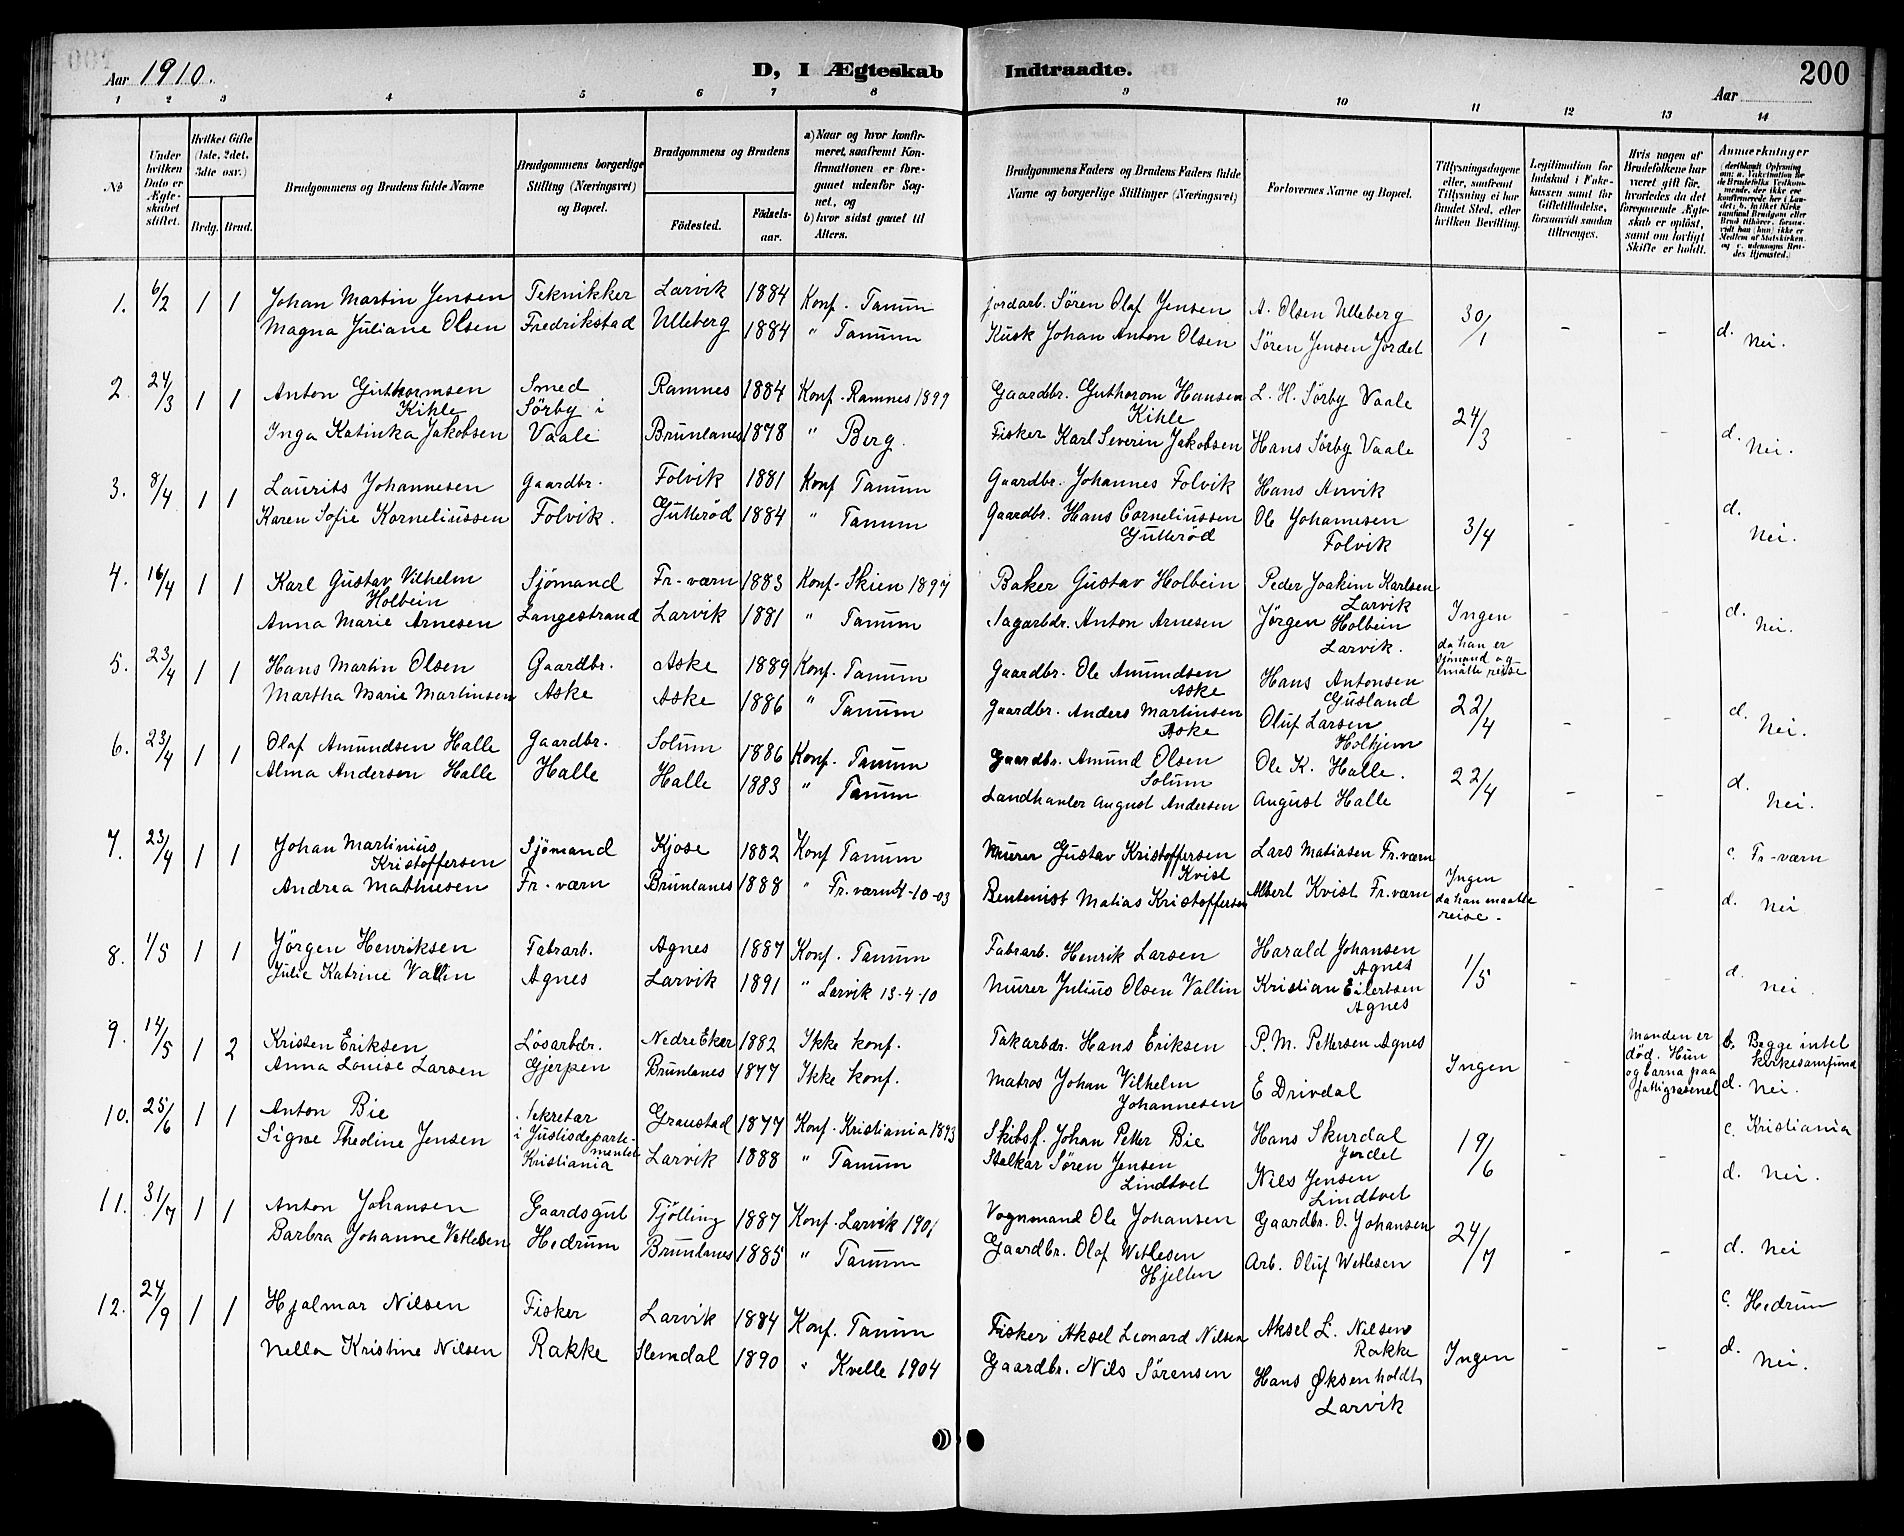 Aar 1910.
D, I Ægteskab Indtraadte.
Aar
200
1 2 3 4 5 6 7 8 9 10 11 12 13 14
№
Under hvilken Dato er Ægteskabet stiftet.
Hvilket Gifte (1ste, 2det, 3die osv.)
Brdg. Brud.
Brudgommens og Brudens fulde Navne
Brudgommens borgerlige Stilling (Næringsvei) og Bopæl.
Brudgommens og Brudens
Födested. Födsels-aar.
a) Naar og hvor konfirmeret, saafremt Konfirmationen er foregaaet udenfor Sognet, og
b) hvor sidst gaaet til Alters.
Brudgommens Faders og Brudens Faders fulde Navne og borgerlige Stillinger (Næringsvei)
Forlovernes Navne og Bopæl.
Tillysningsdagene eller, saafremt Tillysning ei har fundet Sted, efter hvilken Bevilling.
Legitimation for Indskud i Enkekassen samt for Giftetilladelse, forsaavidt saadan tiltrænges.
Hvis nogen af Brudefolkene har været gift før, hvorledes da det foregaaende Ægteskab er opløst, samt om lovligt Skifte er holdt.
Anmærkninger
1. 6/2 1 1 Johan Martin Jensen Teknikker Larvik 1884 Konf. Tanum Jordarb. Sören Olaf Jensen A. Olsen Ulleberg 30/1 - -
Magna Juliane Olsen Fredrikstad Ulleberg 1884 " Tanum Kusk Johan Anton Olsen Sören Jensen Jordet d. Nei.
2. 24/3 1 1 Anton Guthormsen Kihle Smed Ramnes 1884 Konf. Ramnes 1899 Gaardbr. Guthorom Hansen Kihle L. H. Sörby Vaale 24/3 - -
Inga Katinka Jakobsen Sörby i Vaale Brunlanes 1878 " Berg. Fisker Karl Severin Jakobsen Hans Sörby Vaale d. Nei.
3. 8/4 1 1 Laurits Johannesen Gaardbr. Folvik 1881 Konf Tanum Gaardbr. Johannes Folvik Hans Anvik 3/4 - -
Karen Sofie Korneliussen Folvik. Gutteröd 1884 " Tanum Gaardbr. Hans Corneliussen Gutteröd Ole Johannesen Folvik d. Nei.
4. 16/4 1 1 Karl Gustav Vilhelm Holbein Sjömand Fr-værn 1883 Konf. Skien 1897 Baker Gustav Holbein Peder Joakim Karlsen Larvik Ingen - -
Anna Marie Arnesen Langestrand Larvik 1881 " Tanum Sagarbdr. Anton Arnesen Jörgen Holbein Larvik. da han er sjömand og måtte reise d. Nei.
5. 23/4 1 1 Hans Martin Olsen Gaardbr. Aske 1889 Konf. Tanum Gaardbr. Ole Amundsen Aske Hans Antonsen Gusland 22/4 - -
Martha Marie Martinsen Aske Aske 1886 " Tanum Gaardbr. Anders Martinsen Aske Oluf Larsen Holhjem d. Nei.
6. 23/4 1 1 Olaf Amundsen Halle Gaardbr. Solum 1886 Konf. Tanum Gaardbr. Amund Olsen Solum Ole K. Halle. 22/4 - -
Alma Andersen Halle Halle Halle 1883 " Tanum Landhanler August Andersen August Halle d. Nei.
7. 23/4 1 1 Johan Martinius Kristoffersen Sjömand Kjose 1882 Konf Tanum Murer Gustav Kristoffersen Kvist Lars Matiasen Fr.værn Ingen - - c. Fr-værn
Andrea Mathiesen Fr.-værn Brunlanes 1888 " Fr. værn 4-10-03 Matias Kristoffersen Albert Kvist Fr.værn da han maatte reise. d. Nei
8. 1/5 1 1 Jörgen Henriksen Fabrarb. Agnes 1887 Konf. Tanum Fabrarb. Henrik Larsen Harald Johansen Agnes 1/5 - -
Julie Katrine Vallin Agnes Larvik 1891 " Larvik 13-4-10 Murer Julius Olsen Vallin Kristian Eilertsen Agnes d. Nei.
9. 14/5 1 2 Kristen Eriksen Lösarbdr. Nedre Eker 1882 Ikke konf. Fakarbdr. Hans Eriksen P. M. Pettersen Agnes Ingen - Manden er död. Hun og barna paa fattigvæsenet b. Begge intet kirkesamfund
Anna Louise Larsen Gjerpen Brunlanes 1877 Ikke konf. Matros Johan Vilhelm Johannesen E Drivdal d. Nei.
10. 25/6 1 1 Anton Bie Sekretær i Justisdepartementet Graustad 1877 Konf. Kristiania 1893 Skibsf. Johan Petter Bie Hans Skurdal Jordet 19/6 - - c. Kristiania
Signe Thedine Jensen Kristiania Larvik 1888 " Tanum Stelkar Sören Jensen Lindtvet Nils Jensen Lindtvet d. Nei.
11. 31/7 1 1 Anton Johansen Gaardsgut Tjölling 1887 Konf. Larvik 1901 Vognmand Ole Johansen Gaardbr. O. Johansen 24/7 - -
Barbra Johanne Vetlesen Hedrum Brunlanes 1885 " Tanum Gaardbr. Olaf Wetlesen Hjelten Arb. Oluf Wetlesen d. Nei
12. 24/9 1 1 Hjalmar Nilsen Fisker Larvik 1884 Konf. Tanum Fisker Aksel Leonard Nilsen Aksel L. Nilsen Rakke Ingen - - c. Hedrum
Nella Kristine Nilsen Rakke Slemdal 1890 " Kvelle 1904 Gaardbr. Nils Sörensen Hans Øksenholdt Larvik d. Nei.